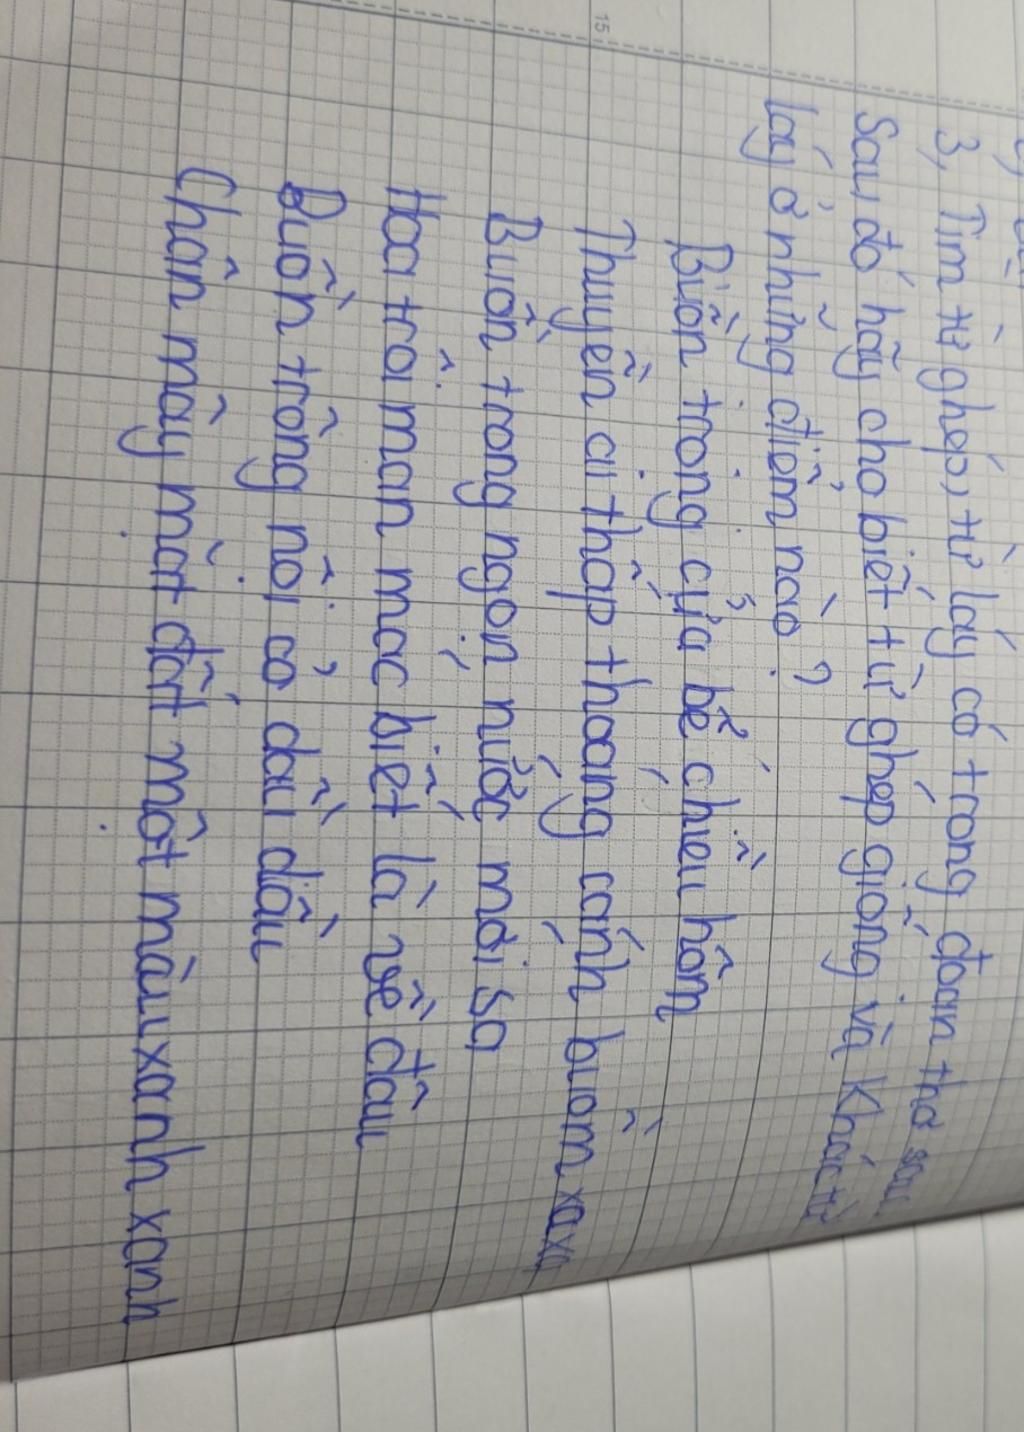 15
3, Tìm từ ghép, từ láy có trong đoạn thơ sau.
Sau đó hãy cho biết từ ghép giống và khác từ
láy ở những điểm nào?
Buồn trông cửa bể chiều hôm
Thuyền ai thấp thoáng cánh buồm xa xa
Buồn trông ngọn nước mới sa
Hoa trôi man mác biết là về đâu
Buồn trông nội cỏ dầu dầu
Chân mây mặt đất một màu xanh xanh